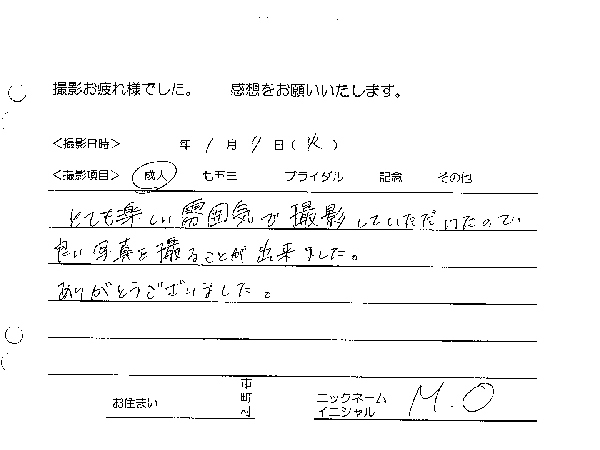 撮影お疲れ様でした。 感想をお願いいたします。
<撮影日時> 年 1 月 9 日 (火)
<撮影項目> 成人 七五三 ブライダル 記念 その他
とても楽しい雰囲気で撮影していただけたので、
良い写真を撮ることが出来ました。
ありがとうございました。
お住まい 市町村 ニックネーム イニシャル M.O